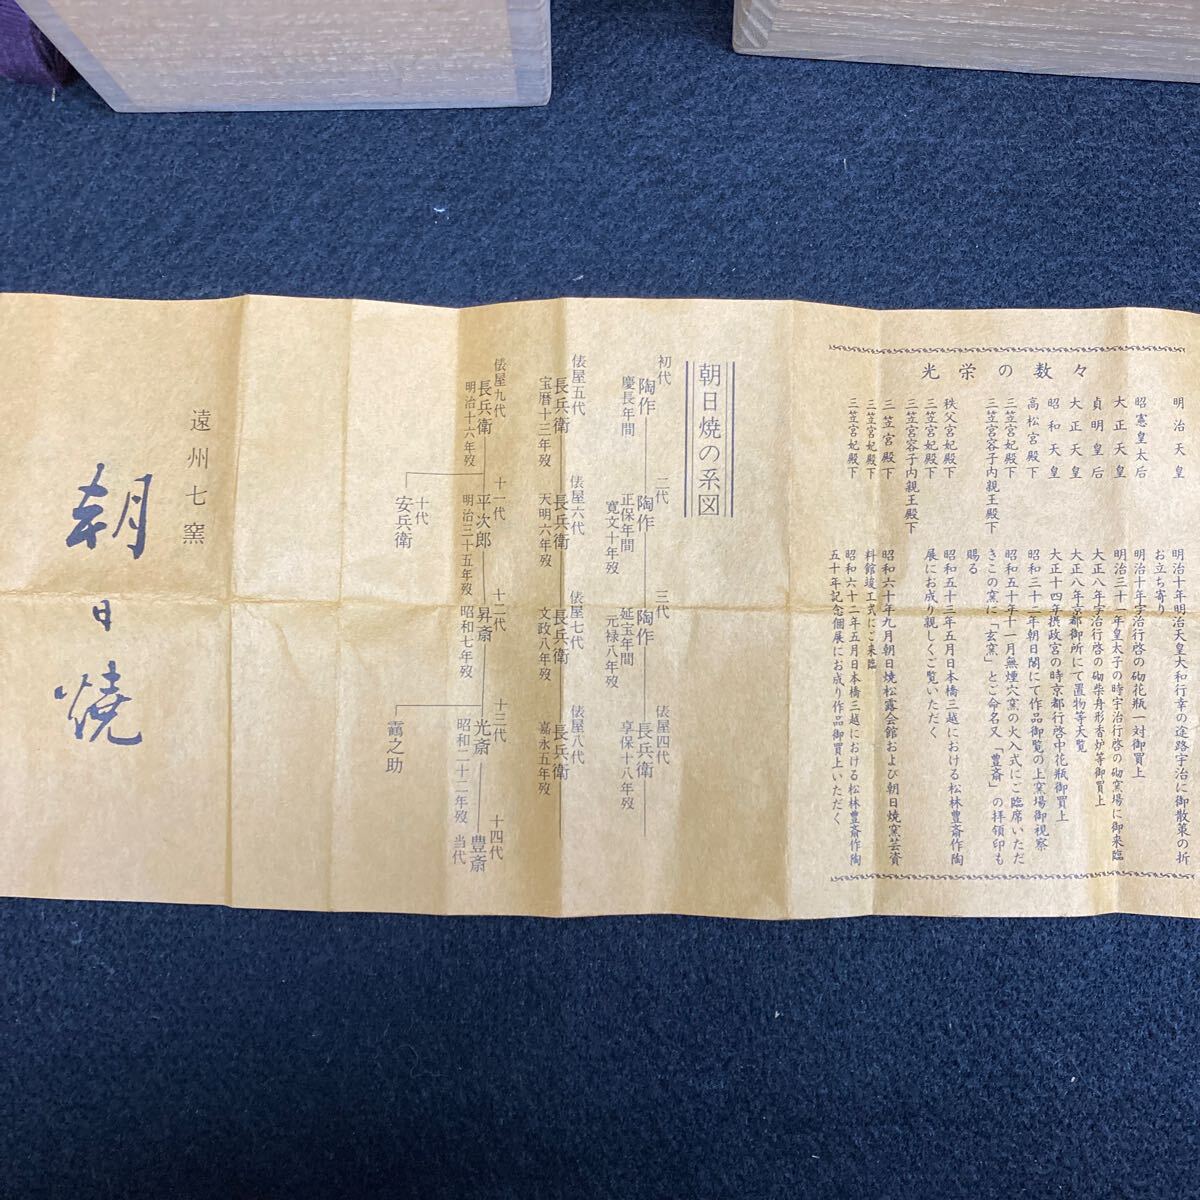 光栄の数々
明治天皇 明治十年明治天皇大和行幸の途路宇治に御散策の折
お立ち寄り
昭憲皇太后 明治十年宇治行啓の砌花瓶一対御買上
大正天皇 明治三十一年皇太子の時宇治行啓の砌窯場に御来臨
貞明皇后 大正八年宇治行啓の砌柴舟形香炉等御買上
大正天皇 大正八年京都御所にて置物等天覧
昭和天皇 大正十四年摂政宮の時京都行啓中花瓶御買上
高松宮殿下 昭和三十二年朝日閣にて作品御覧の上窯場御視察
三笠宮妃殿下 昭和五十年十一月無煙穴窯の火入式にご臨席いただ
三笠宮容子内親王殿下 きこの窯に「玄窯」とご命名又「豊斎」の拝領印も
賜る
秩父宮妃殿下 昭和五十三年五月日本橋三越における松林豊斎作陶
三笠宮妃殿下 展にお成り親しくご覧いただく
三笠宮容子内親王殿下
三笠宮殿下 昭和六十年九月朝日焼松露会館および朝日焼窯芸資
三笠宮妃殿下 料館竣工式にご来臨
三笠宮妃殿下 昭和六十二年五月日本橋三越における松林豊斎作陶
五十年記念個展にお成り作品御買上いただく
朝日焼の系図
初代 二代 三代 俵屋四代
陶作 陶作 陶作 長兵衛
慶長年間 正保年間 延宝年間 享保十八年歿
寛文十年歿 元禄八年歿
俵屋五代 俵屋六代 俵屋七代 俵屋八代
長兵衛 長兵衛 長兵衛 長兵衛
宝暦十三年歿 天明六年歿 文政八年歿 嘉永五年歿
俵屋九代 十一代 十二代 十三代 十四代
長兵衛 平次郎 昇斎 光斎 豊斎
明治十六年歿 明治三十五年歿 昭和七年歿 昭和二十二年歿 当代
十代
安兵衛 靏之助
遠州七窯
朝日焼